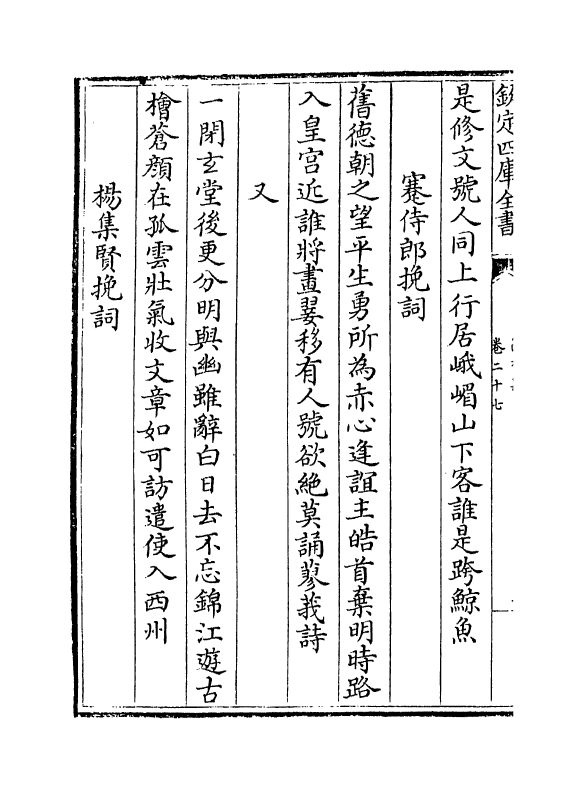 欽定四庫全書
卷二十七
是修文號人同上行居峨嵋山下客誰是跨鯨魚
蹇侍郎挽詞
舊德朝之望平生勇所為赤心逢誼主皓首棄明時路
入皇宫近誰將畫翣移有人號欲絶莫誦蓼莪詩
又
一閉玄堂後更分明與幽雖辭白日去不忘錦江遊古
檜蒼顔在孤雲壯氣收文章如可訪遣使入西州
楊集賢挽詞